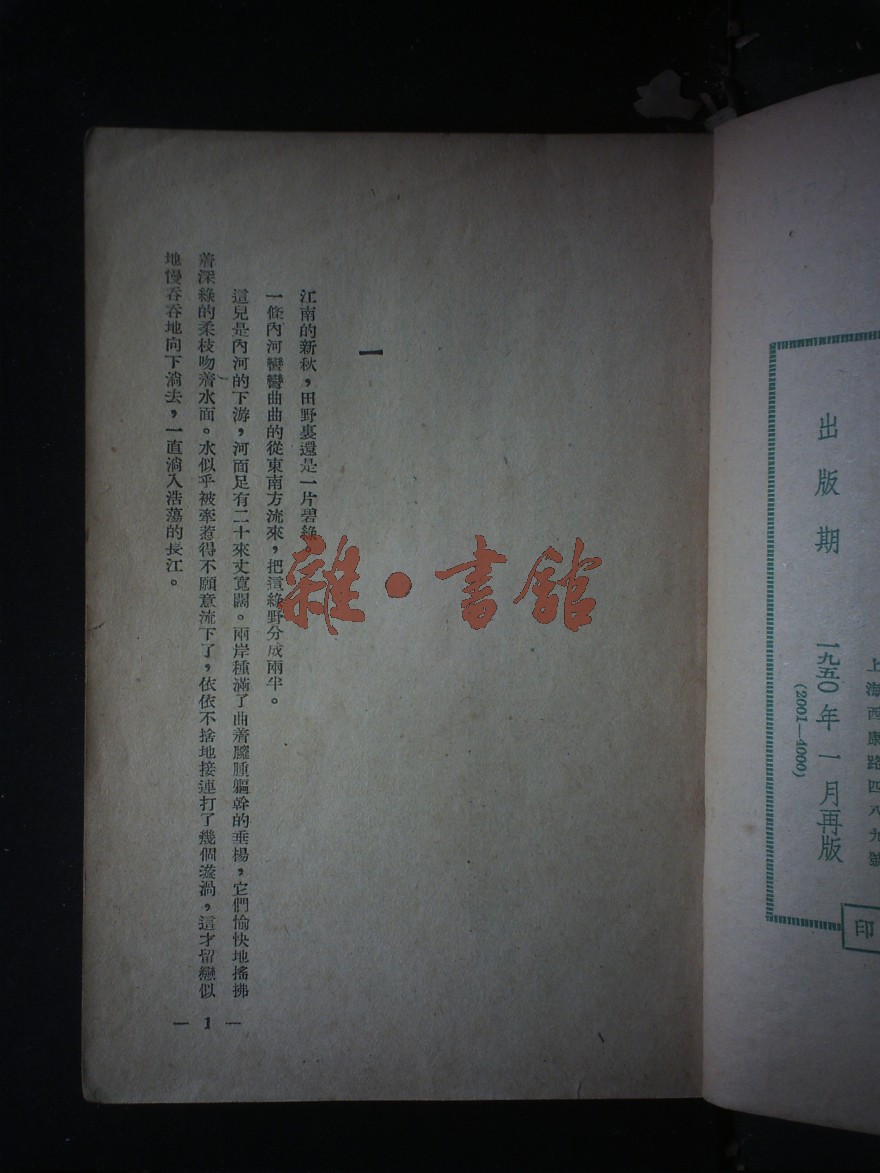 出版期 一九五〇年一月再版
(2001—4000)
上海西康路四八九號
印
一
江南的新秋，田野裏還是一片碧綠
一條內河彎彎曲曲的從東南方流來，把這綠野分成兩半。
這兒是內河的下游，河面足有二十來丈寬闊。兩岸種滿了曲着臃腫軀幹的垂楊，它們愉快地搖拂
着深綠的柔枝吻着水面。水似乎被牽惹得不願意流下了，依依不捨地接連打了幾個漩渦，這才留戀似
地慢吞吞地向下淌去，一直淌入浩蕩的長江。
— 1 —
雜·書舘